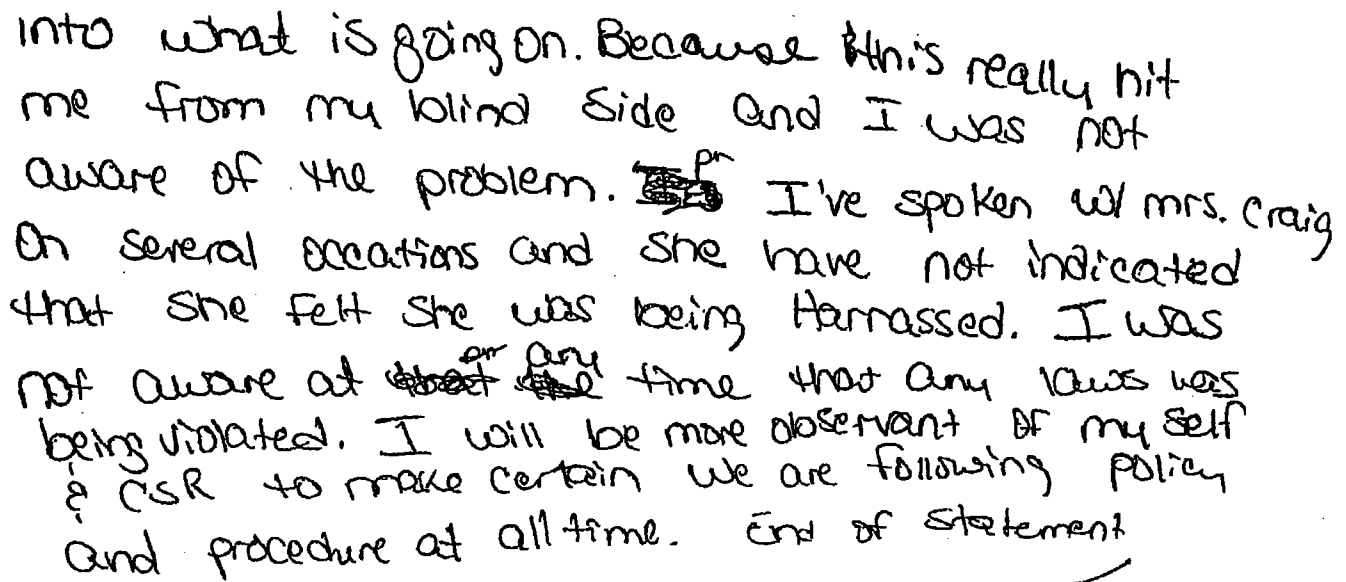 into what is going on. Because this really hit
me from my blind side and I was not
aware of the problem. pr I've spoken w/ mrs. Craig
On several occations and she have not indicated
that she felt she was being Harrassed. I was
not aware at pr any time that any laws was
being violated. I will be more observant of my self
& CSR to make certain we are following policy
and procedure at all time. End of statement